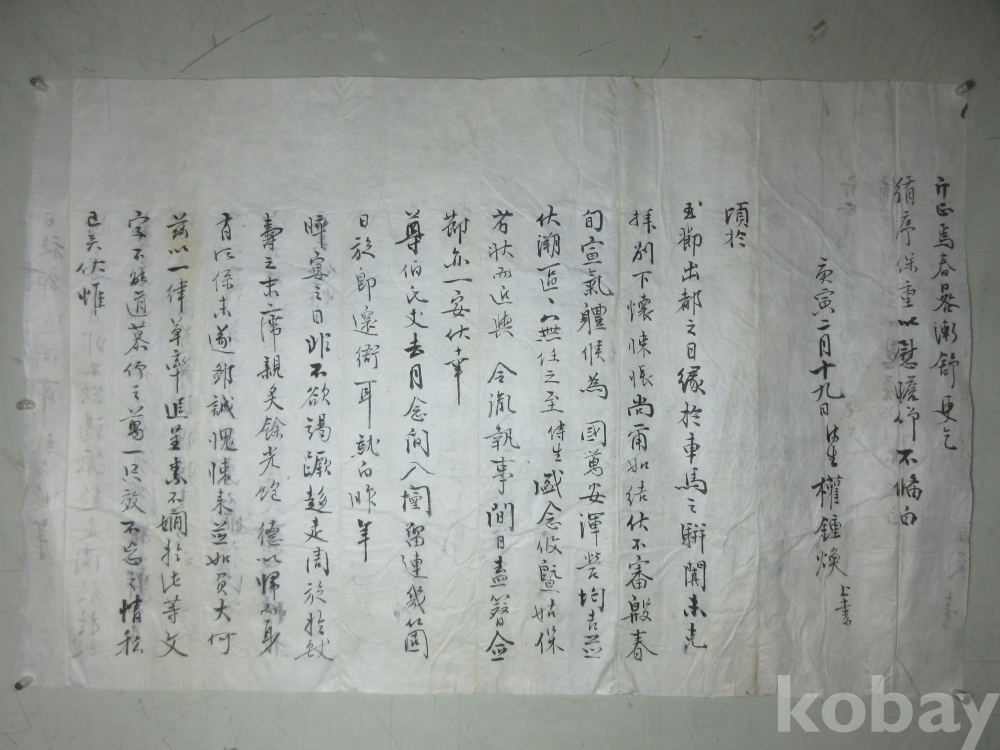 頃於
玉節出都之日緣於車馬之騈闐未克
拜別下懷悚悵尙爾如結伏不審殷春
旬宣氣體候爲 國萬安渾營均吉並
伏溯區〻無任之至侍生 盛念攸曁姑保
劣狀而近與 令胤執事間日盍簪僉
節亦一安伏幸
尊伯氏丈去月念間入闉留連幾箇
日旋卽還衙耳就白昨年
晬宴之日非不欲竭蹶趍走周旋於獻
壽之末席親炙餘光飽 德以歸而身
有所係未遂鄙誠愧悚交並如負大何
茲以一律草率追呈素不嫺於此等文
字不能道慕仰之萬一只效不忘之情私
已矣伏惟
斤正焉春晷漸舒 更乞
循序保重以慰瞻仰不備白
庚寅二月十九日侍生權鍾煥 上書
kobay